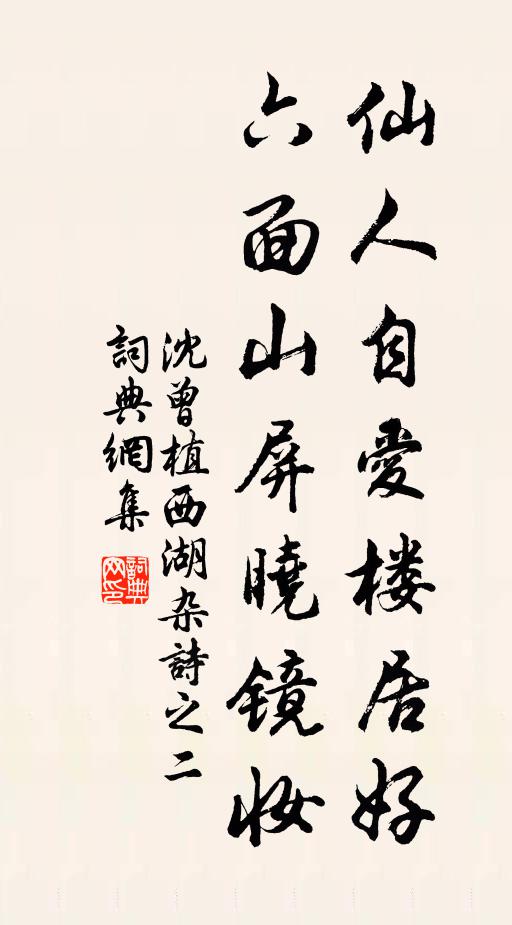 仙人自愛楼居好
六面山屏曉镜妝
沈曾植西湖杂詩之二
詞典網集
詞典网印